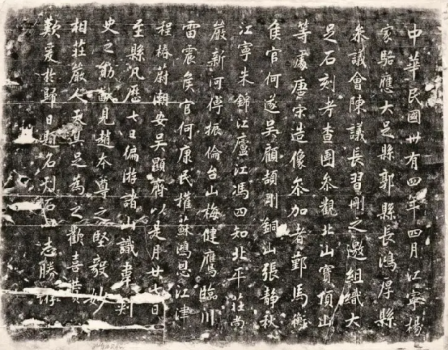 中華民國卅有四年四月江寧楊
家駱應大足縣郭縣長鴻厚縣
參議會陳議長習刪之邀組織大
足石刻考查團參觀北山寶頂山
等處唐宋造像參加者鄞馬衡
侯官何遂吳顧頡剛銅山張靜秋
江寧朱錦江廬江馮四知北平莊尚
嚴新河傅振倫台山梅健鷹臨川
雷震侯官何康民權蘇鴻恩江津
程椿蔚潮安吳顯齊以是月廿七日
至縣凡歷七日徧游諸山識韋刺
史之勳獻見趙本尊之堅毅妙
相莊嚴人天具足為之歡喜讚
歎爰於歸日石刻石志勝游